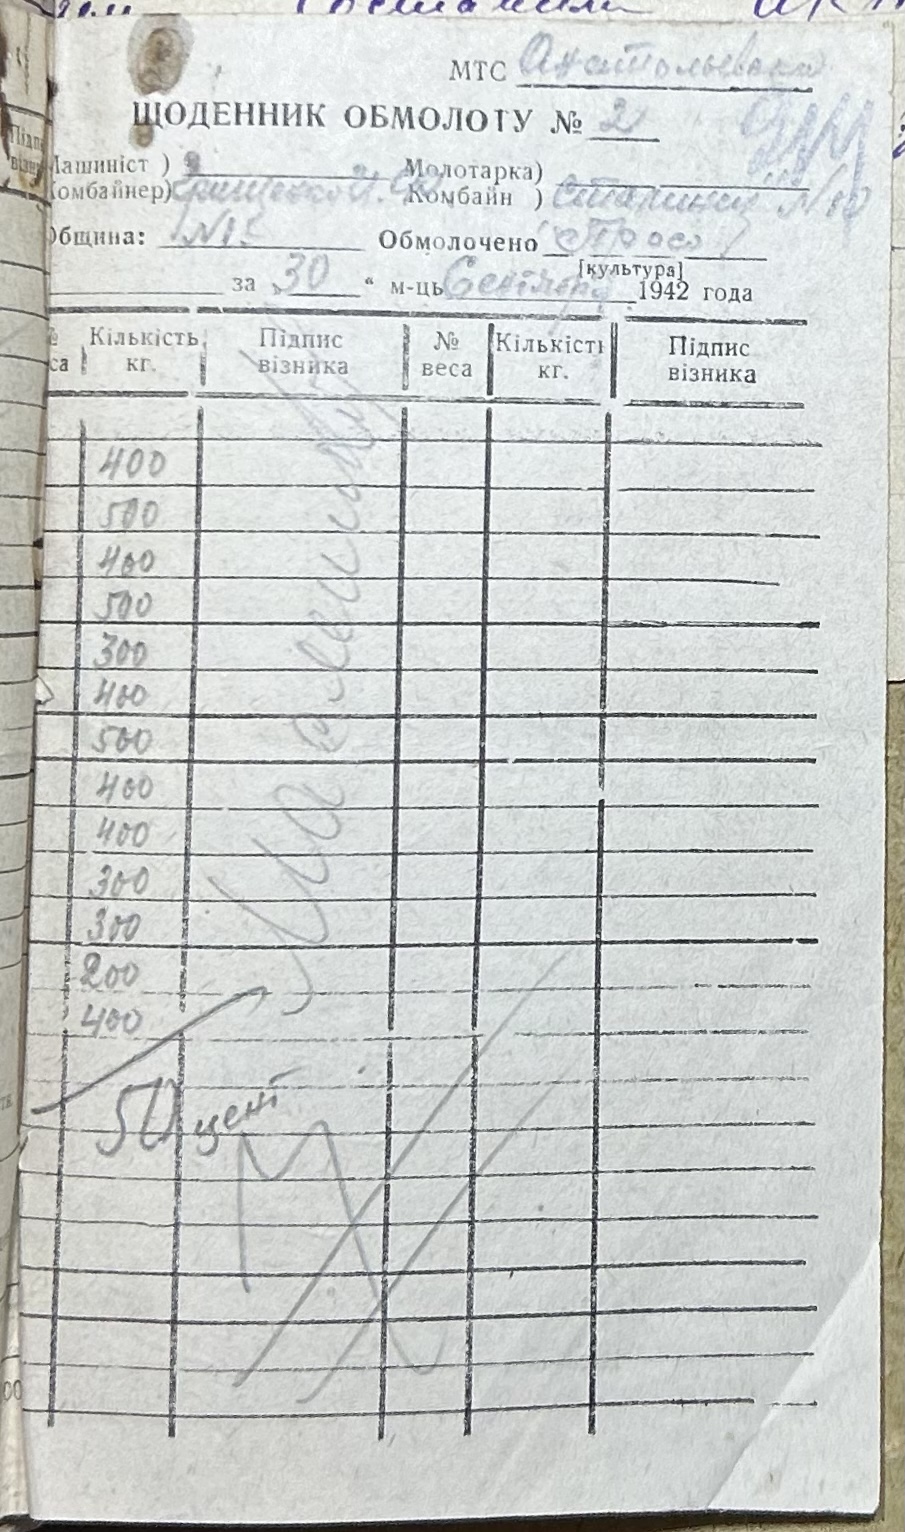 МТС Анатольевская
ЩОДЕННИК ОБМОЛОТУ № 2
Машиніст ) Молотарка)
Комбайнер) Комбайн ) Сталинец №10
Община: №13 Обмолочено Просо
[культура]
за „30“ м-ць Сентябр 1942 года
Кількість кг. Підпис візника № веса Кількість кг. Підпис візника
400
500
400
500
300
400
500
400
400
300
300
200
400
50 цент